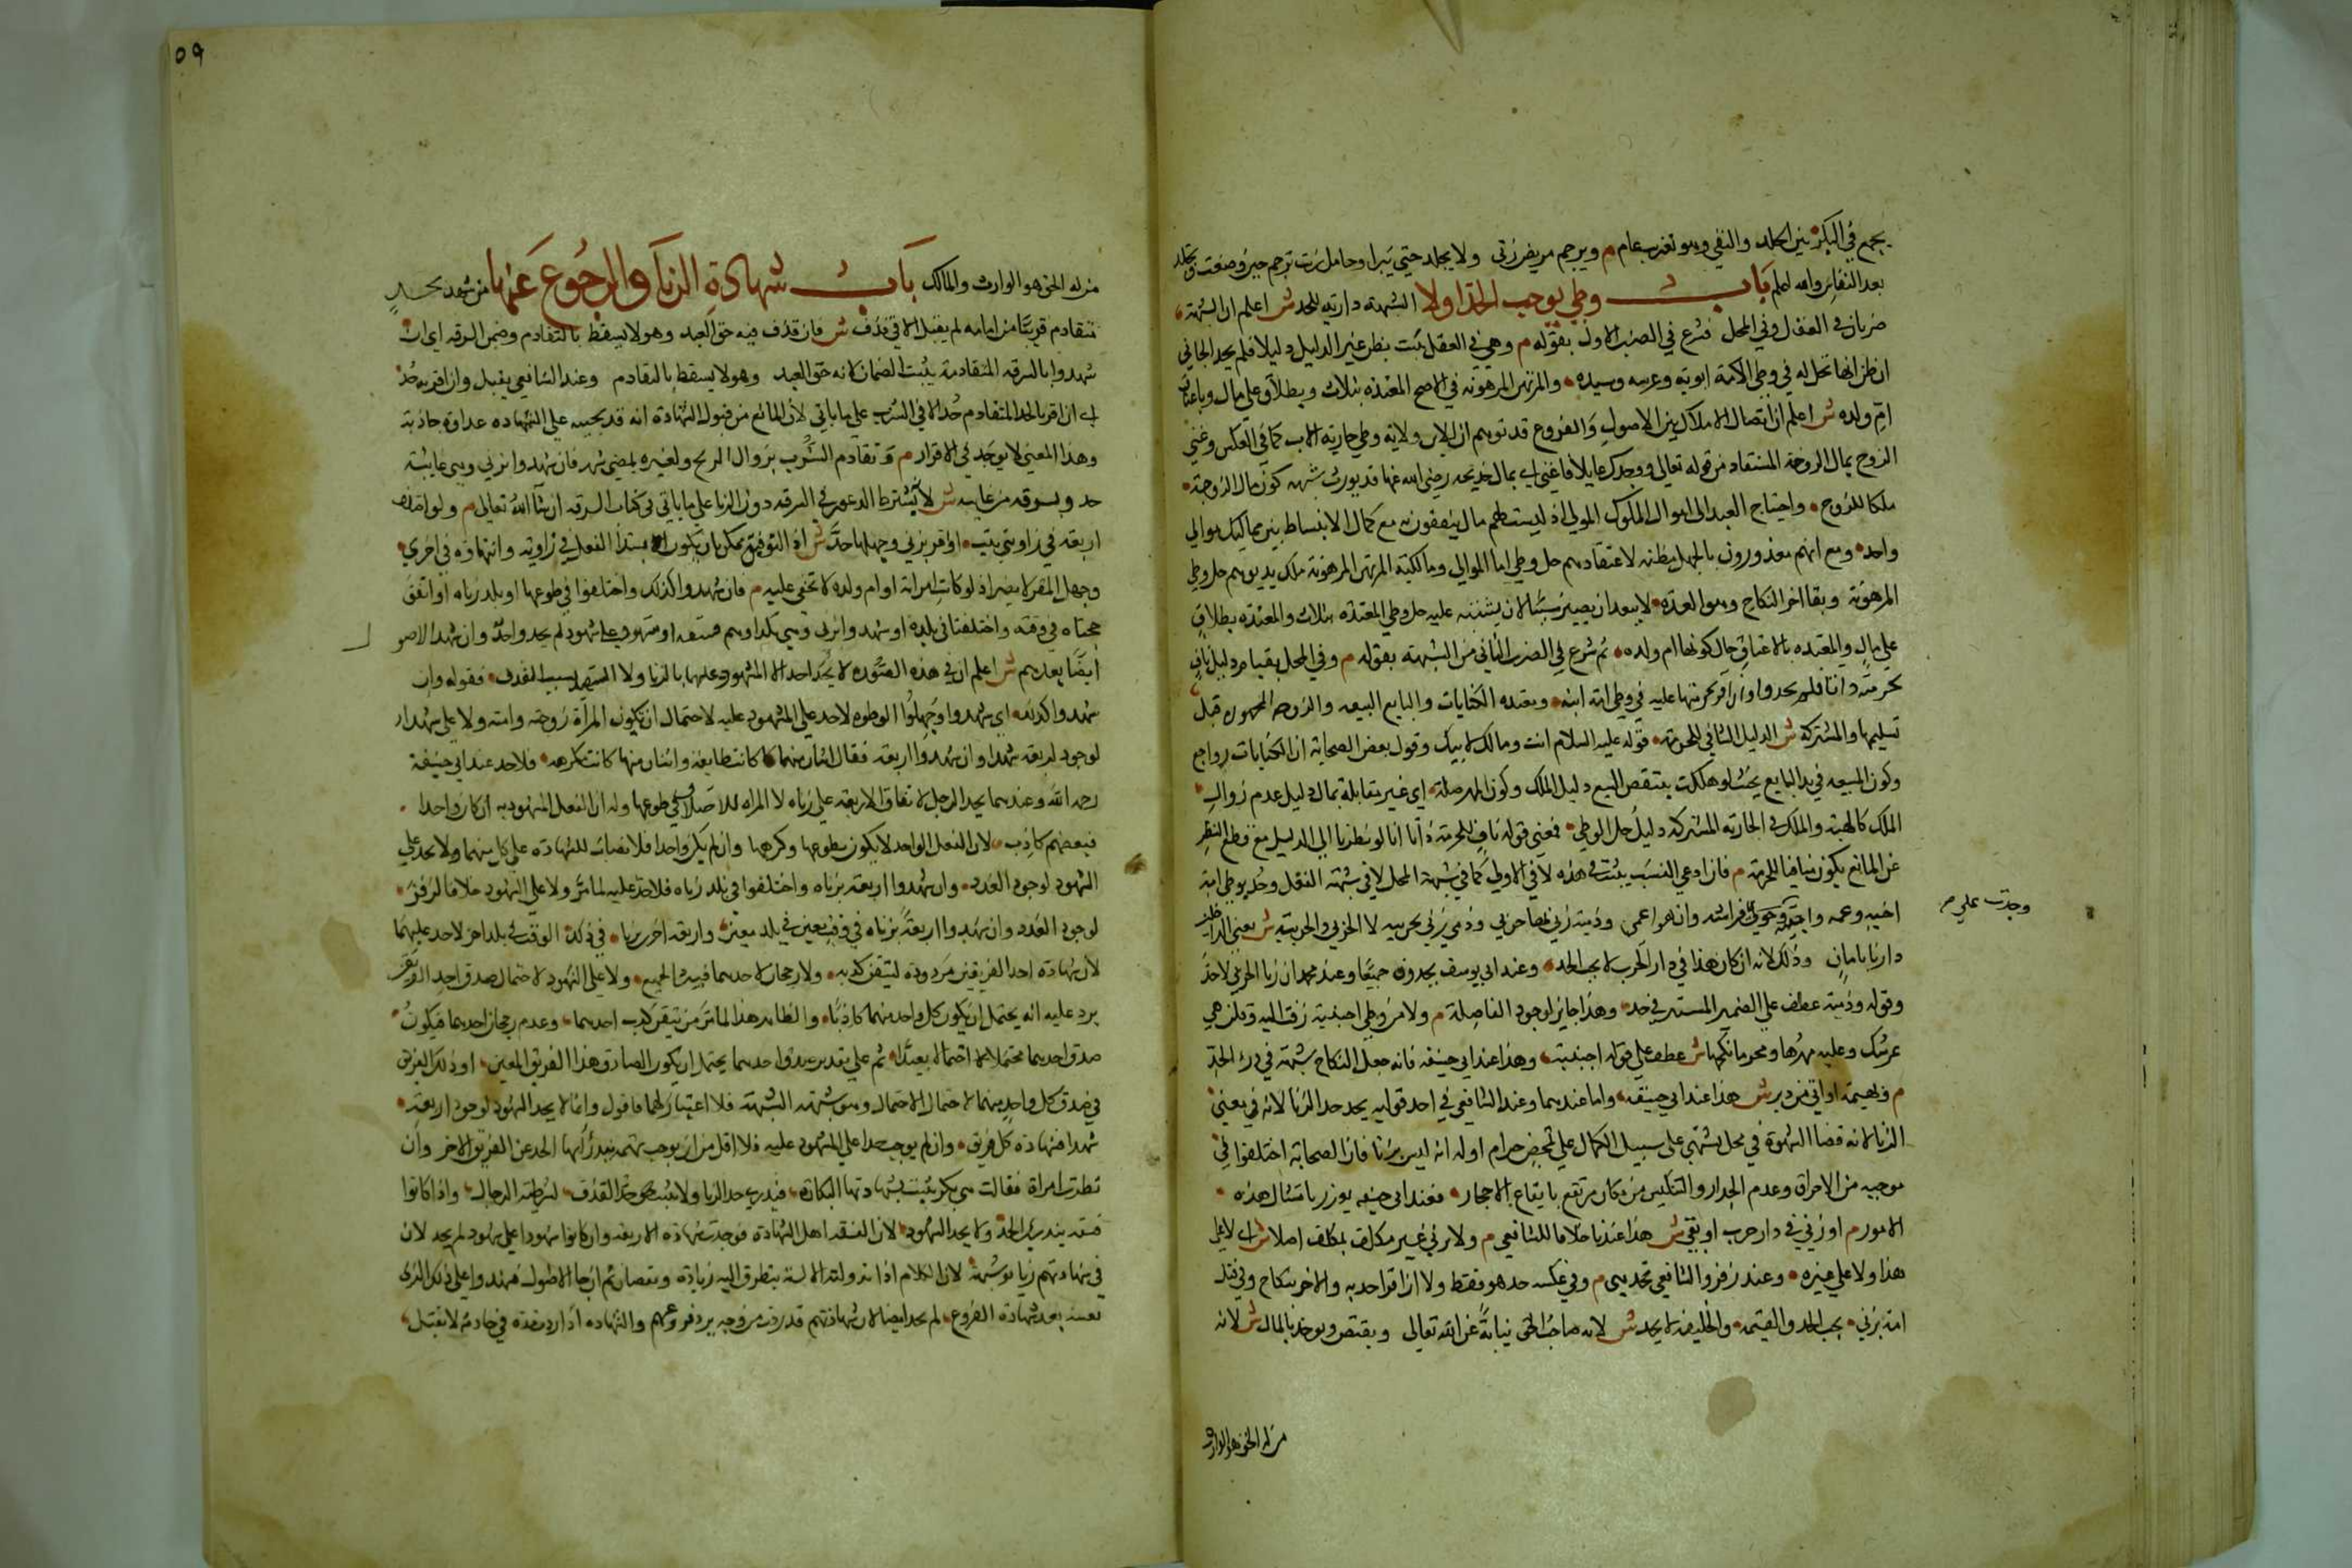 يجمع في البكر بين الجلد والنفي وهو تغريب عام م ويرجم مريض زنى ولا يجلد حتى يبرأ وحامل زنت ترجم حين وضعت وتجلد
بعد النفاس والله اعلم باب وطي يوجب الحد او لا الشبهة دارية للحد ش اعلم ان الشبهة
ضربان في الفعل وفي المحل شرع في الضرب الاول بقوله م وهي في الفعل تثبت بظن غير الدليل دليلا فلم يحد الجاني
ان ظن انها تحل له في وطي الامة ابويه وعرسه وسيده والمرتهن المرهونة في الاصح والمعتدة بثلاث وبطلاق على مال وباعتاق
ام ولده ش اعلم ان اتصال الاملاك بين الاصول والفروع قد توهم ان للابن ولاية وطي جارية الاب كما في العكس وغنى
الزوج بمال الزوجة المستفاد من قوله تعالى ووجدك عايلا فاغنى اي بمال خديجة رضي الله عنها قد يورث شبهة كون مال الزوجة
ملكا للزوج واحتياج العبد الى اموال المولى اذ ليس لهم مال ينفقون به مع كمال الانبساط بين مماليك موالي
واحد ومع انهم معذورون بالجهل مظنة لاعتقادهم حل وطي اما الموالي ومالكية المرتهن المرهونة ملك يد يوهم حل وطي
المرهونة وبقا اثر النكاح وهو العدة لا يبعد ان يصير سببا لان يشتبه عليه حل وطي المعتدة بثلاث والمعتدة بطلاق
على مال والمعتدة بالاعتاق حال كونها ام ولده ثم شرع في الضرب الثاني من الشبهة بقوله م وفي المحل بقيام دليل ناف
للحرمة ذاتا فلم يحد وان اقر بحرمتها عليه في وطي امة ابنه ومعتدة الكنايات والبايع المبيعة والزوج الممهورة قبل
تسليمها والمشتركة ش الدليل النافي للحرمة قوله عليه السلام انت ومالك لابيك وقول بعض الصحابة ان الكنايات رواجع
وكون المبيعة في يد البايع بحيث لو هلكت ينتقض البيع دليل الملك وكون المهر صلة اي غير مقابلة بمال دليل عدم زوال
الملك كالهبة والملك في الجارية المشتركة دليل حل الوطي فمعنى قوله ناف للحرمة ذاتا انا لو نظرنا الى الدليل مع قطع النظر
عن المانع يكون منافيا للحرمة م فان ادعى النسب يثبت في هذه لا في الاولى كما في شبهة المحل لا في شبهة الفعل وحد بوطي امة
اخيه وعمه واجنبية وجدت على فراشه وان هو اعمى وذمية زنى بها حربي وذمي زنى بحربية لا الحربي والحربية ش يعني اذا دخل
دارنا بامان وذلك لانه ان كان هذا في دار الحرب لا يجب الحد وعند ابي يوسف يحدون جميعا وعند محمد ان زنا الحربي لا حد
وقوله وذمية عطف على الضمير المستتر في حد وهذا جايز لوجود الفاصلة م ولا من وطي اجنبية زفت اليه وقلن هي
عرسك وعليه مهرها ومحرما نكحها ش عطف على قوله اجنبية وهذا عند ابي حنيفة فانه جعل النكاح شبهة في درء الحد
م وبهيمة او اتى في دبر ش هذا عند ابي حنيفة واما عندهما وعند الشافعي في احد قوليه يحد حد الزنا لانه في معنى
الزنا لانه قضا الشهوة في محل مشتهى على سبيل الكمال على تمحض حرام وله انه ليس بزنا فان الصحابة اختلفوا في
موجبه من الاحراق وهدم الجدار والتنكيس من مكان مرتفع باتباع الاحجار فعند ابي حنيفة يعزر بامثال هذه
الامور م او زنى في دار حرب او بغي ش هذا عندنا خلافا للشافعي م ولا بزنى غير مكلف بمكلفة اصلا ش اي لا على
هذا ولا على هذه وعند زفر والشافعي تحد هي م وفي عكسه حد هو فقط ولا ان اقر احد به والاخر بنكاح وفي قتل
امة بزنى يجب الحد والقيمة والخليفة لا يحد ش لانه صاحب الحق نيابة عن الله تعالى ويقتص ويوخذ بالمال ش لانه
وجدت على م
من له الحق هو الوارث و
٥٩
من له الحق هو الوارث والمالك باب شهادة الزنا والرجوع عنها من شهد بحد
متقادم قريبا من امامه لم يقبل الا في قذف ش فان قذف فيه حق العبد وهو لا يسقط بالتقادم وضمن السرقة اي ان
شهدوا بالسرقة المتقادمة يثبت الضمان لانه حق العبد وهو لا يسقط بالتقادم وعند الشافعي يقبل وان اقر به حد
اي ان اقر بالحد المتقادم حد الا في الشرب على ما ياتي لان المانع من قبول الشهادة انه قد يحييه على الشهادة عداوة حادثة
وهذا المعنى لا يوجد في الاقرار م وتقادم الشرب بزوال الريح ولغيره بمضي شهر فان شهدوا بزنى وهي غايبة
حد وبسرقة من غايب ش لا يشترط الدعوى في السرقة دون الزنا على ما ياتي في كتاب السرقة ان شا الله تعالى م ولو اختلف
اربعة في زاويتي بيت او اقر بزنى وجهلها حد ش اذ التوفيق ممكن بان يكون ابتدا الفعل في زاوية وانتهاؤه في اخرى
وجهل المقر لا يضر اذ لو كانت امراته او ام ولده لا تخفى عليه م فان شهدوا كذلك واختلفوا في طوعها او بلد زناه او اتفق
حجتاه في وقته واختلفتا في بلده او شهدوا بزنى وهي بكر او هم فسقة او شهود على شهود لم يحد واحد وان شهد الاصول
ايضا بعدهم ش اعلم ان في هذه الصورة لا يحد احد الا المشهود عليهما بالزنا ولا الشهود بسبب القذف فقوله وان
شهدوا كذلك اي شهدوا وجهلوا الموطوءة لا حد على المشهود عليه لاحتمال ان يكون المراة زوجته وامته ولا على شهدا
لوجود اربعة شهدا وان شهدوا اربعة فقال اثنان منهما كانت طايعة واثنان منها كانت مكرهة فلا حد عند ابي حنيفة
رحمه الله وعندهما يحد الرجل لاتفاق الاربعة على زناه لا المراة للاختلاف في طوعها وله ان الفعل المشهود به ان كان واحدا
فبعضهم كاذب لان الفعل الواحد لا يكون بطوعها وكرهها وان لم يكن واحدا فلا نصاب للشهادة على كل منهما ولا يحد على
الشهود لوجود العدد وان شهدوا اربعة بزناه واختلفوا في بلد زناه فلا حد عليه لما مر ولا على الشهود خلافا لزفر
لوجود العدد وان شهدوا اربعة بزناه في وقت معين في بلد معين واربعة اخر بزناه في ذلك الوقت في بلد اخر لا حد عليهما
لان شهادة احد الفريقين مردودة لتيقن كذبه ولا رجحان لاحدهما فيرد الجميع ولا على الشهود لاحتمال صدق احد الفريقين
يرد عليه انه يحتمل ان يكون كل واحد منهما كاذبا والظاهر هذا لما مر من تيقن كذب احدهما وعدم رجحان احدهما فيكون
صدق احدهما محتملا احتمالا بعيدا ثم على تقدير صدق احدهما يحتمل ان يكون الصادق هذا الفريق المعين او ذلك الفريق
في صدق كل واحد منهما احتمال الاحتمال وهو شبهة الشبهة فلا اعتبار لها فاقول وانما لا يحد الشهود لوجود اربعة
شهدا فشهادة كل فريق وان لم يوجب حدا على المشهود عليه فلا اقل من ان يوجب تهمة يندرأ بها الحد عن الفريق الاخر وان
نظرت امراة فقالت هي بكر يثبت بشهادتها البكارة فيندرئ حد الزنا ولا يثبت حد القذف لشرطية الرجال واذا كانوا
فسقة يندرئ الحد ولا يحد الشهود لان الفسقة اهل الشهادة فوجدت شهادة الاربعة وان كانوا شهودا على شهود لم يحد لان
في شهادتهم زيادة شبهة لان الكلام اذا تداولته الالسنة يتطرق اليه زيادة ونقصان ثم ان جا الاصول فشهدوا على ذلك الزنى
بعينه بعد شهادة الفروع لم يحد ايضا لان شهادتهم قد ردت من وجه برد فروعهم والشهادة اذا ردت مرة في حادثة لا تقبل